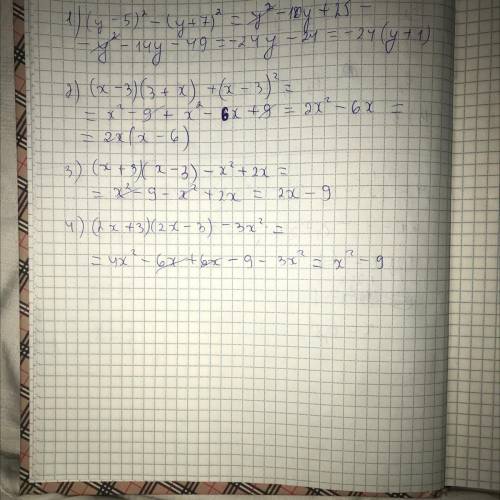 1) (y-5)² - (y+7)² = y² - 10y + 25 -
- y² - 14y - 49 = -24y - 24 = -24(y+1)
2) (x-3)(3+x) + (x-3)² =
= x² - 9 + x² - 6x + 9 = 2x² - 6x =
= 2x(x-6)
3) (x+3)(x-3) - x² + 2x =
= x² - 9 - x² + 2x = 2x - 9
4) (2x+3)(2x-3) - 3x² =
= 4x² - 6x + 6x - 9 - 3x² = x² - 9